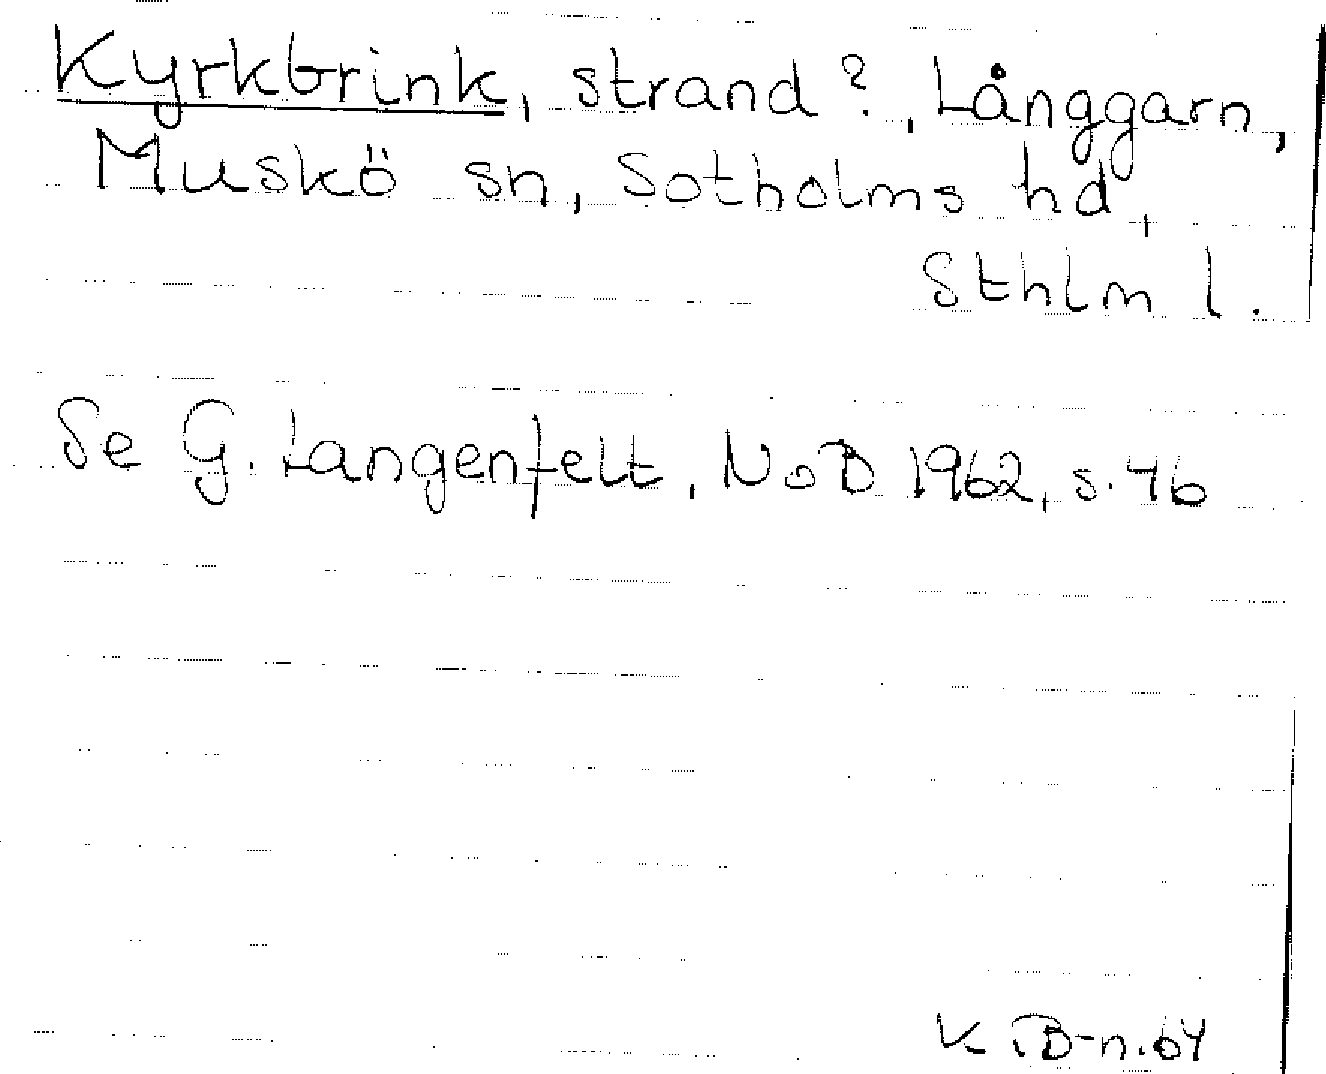 Kyrkbrink, strand?, Långgarn,
Muskö sn, Sotholms hd,
Sthlm l.
Se G. Langenfelt, NoB 1962, s. 46
K. B-n. 64